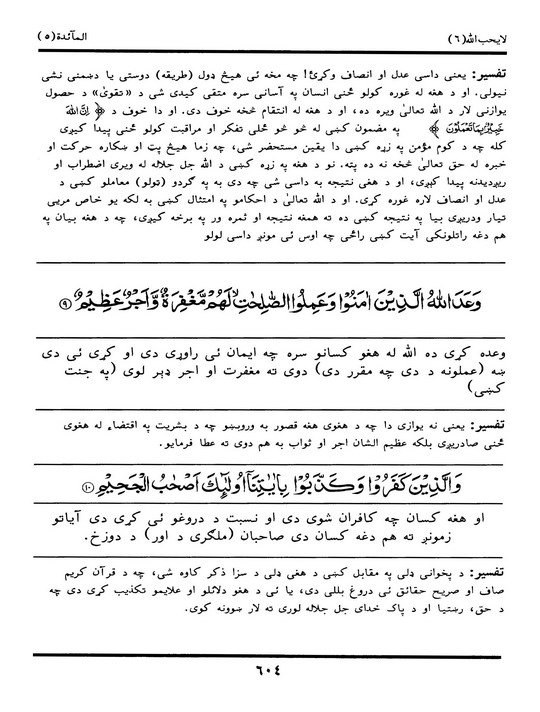 لايحب الله (٦)
المآئدة (٥)
تفسير: يعنى داسې عدل او انصاف وکړئ! چه مخه ئې هيڅ ډول (طريقه) دوستى يا دښمنى نشى
نيولى. او د هغه له غوره کولو څنې انسان په آسانى سره متقى کيدى شى د «تقوىٰ» د حصول
يوازنى لار د الله تعالىٰ ويره ده، او د هغه له انتقام څخه خوف دى. او دا خوف د ﴿ اِنَّ اللّٰهَ
خَبِيْرٌۢ بِمَا تَعْمَلُوْنَ ﴾ په مضمون کښى له څو څو ځلى تفکر او مراقبت کولو څنې پيدا کيږى
کله چه د کوم مؤمن په زړه کښى دا يقين مستحضر شى، چه زما هيڅ پټ او ښکاره حرکت او
خبره له حق تعالىٰ څخه نه ده پټه. نو د هغه په زړه کښى د الله جل جلاله له ويرى اضطراب او
ريږديدنه پيدا کيږى، او د هغى نتيجه به داسې شى چه دى به په ګردو (ټولو) معاملو کښى د
عدل او انصاف لاره غوره کړى. او د الله تعالىٰ د احکامو په امتثال کښى به لکه يو خاص مريى
تيار ودريږى بيا په نتيجه کښى ده ته همغه نتيجه او ثمره ور په برخه کيږى، چه د هغه بيان په
هم دغه راتلونکى آيت کښى راځى چه اوس ئې مونږ داسې لولو
وَعَدَ اللّٰهُ الَّذِيْنَ اٰمَنُوْا وَعَمِلُوا الصّٰلِحٰتِ ۙ لَهُمْ مَّغْفِرَةٌ وَّاَجْرٌ عَظِيْمٌ ۝٩
وعده کړى ده الله له هغو کسانو سره چه ايمان ئې راوړى دى او کړى ئې دى
ښه (عملونه د دى چه مقرر دى) دوى ته مغفرت او اجر ډېر لوى (په جنت
کښى)
تفسير: يعنى نه يوازى دا چه د هغوى هغه قصور به وروبښو چه د بشريت په اقتضاء له هغوى
څنى صادريږى بلکه عظيم الشان اجر او ثواب به هم دوى ته عطا فرمايو.
وَالَّذِيْنَ كَفَرُوْا وَكَذَّبُوْا بِاٰيٰتِنَآ اُولٰٓئِكَ اَصْحٰبُ الْجَحِيْمِ ۝١٠
او هغه کسان چه کافران شوى دى او نسبت د دروغو ئې کړى دى آياتو
زمونږ ته هم دغه کسان دى صاحبان (ملګرى د اور) د دوزخ.
تفسير: د پخوانى ډلى په مقابل کښى د هغى ډلى د سزا ذکر کاوه شى، چه د قرآن کريم
صاف او صريح حقائق ئې دروغ بللى دى، يا ئې د هغو دلائلو او علايمو تکذيب کړى دى چه
د حق، رښتيا او د پاک خداى جل جلاله لورى ته لار ښوونه کوى.
٦٠٤